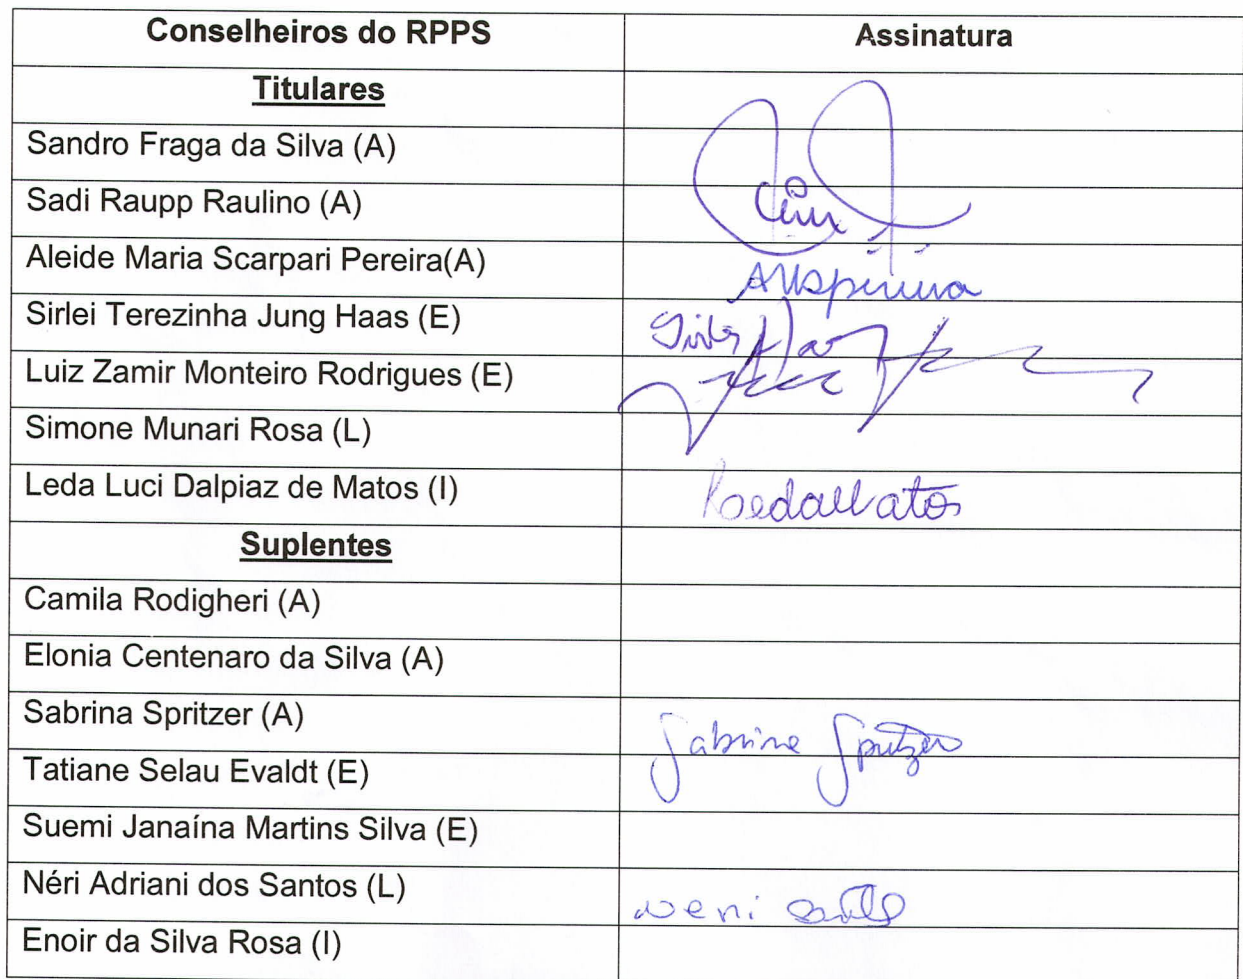 Conselheiros do RPPS Assinatura
Titulares
Sandro Fraga da Silva (A)
Sadi Raupp Raulino (A)
Aleide Maria Scarpari Pereira(A)
Sirlei Terezinha Jung Haas (E)
Luiz Zamir Monteiro Rodrigues (E)
Simone Munari Rosa (L)
Leda Luci Dalpiaz de Matos (I)
Suplentes
Camila Rodigheri (A)
Elonia Centenaro da Silva (A)
Sabrina Spritzer (A) Sabrina Spritzer
Tatiane Selau Evaldt (E)
Suemi Janaína Martins Silva (E)
Néri Adriani dos Santos (L) Neri
Enoir da Silva Rosa (I)